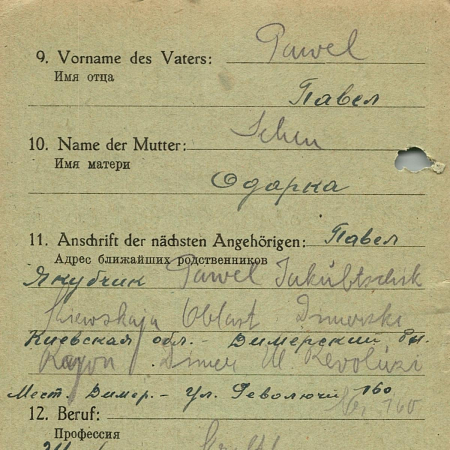 9. Vorname des Vaters: Pawel
Имя отца
Павел
10. Name der Mutter:
Имя матери
Одарка
11. Anschrift der nächsten Angehörigen: Павел
Адрес ближайших родственников
Якубчик Pawel Jakubtschik
Kiewskaja Oblast Dimerski
Киевская обл. - Димерский
Rayon Dimer Ul Revolüzi
Мест. Димер. - Ул. Революци 160
160
12. Beruf:
Профессия